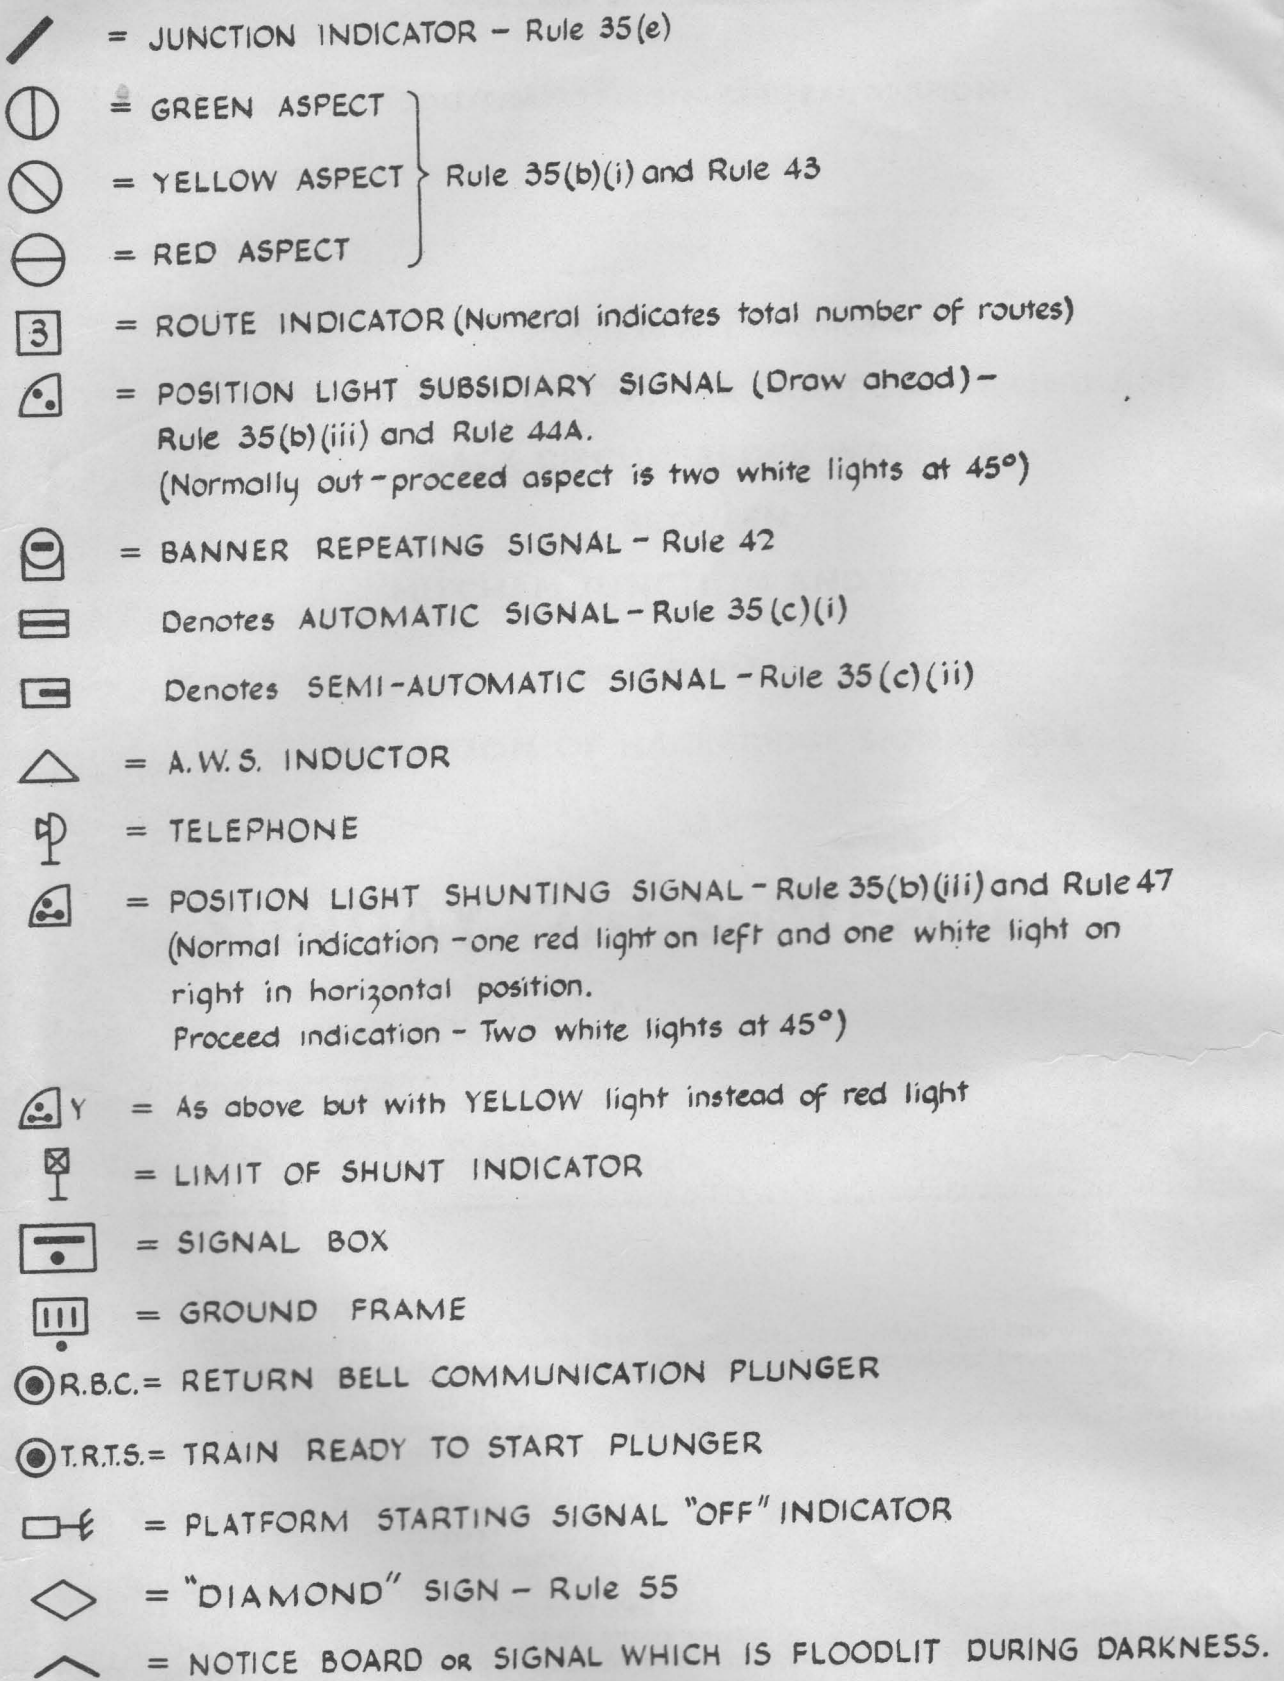 = JUNCTION INDICATOR - Rule 35(e)
= GREEN ASPECT
= YELLOW ASPECT Rule 35(b)(i) and Rule 43
= RED ASPECT
3 = ROUTE INDICATOR (Numeral indicates total number of routes)
= POSITION LIGHT SUBSIDIARY SIGNAL (Draw ahead) -
Rule 35(b)(iii) and Rule 44A.
(Normally out - proceed aspect is two white lights at 45°)
= BANNER REPEATING SIGNAL - Rule 42
Denotes AUTOMATIC SIGNAL - Rule 35(c)(i)
Denotes SEMI-AUTOMATIC SIGNAL - Rule 35(c)(ii)
= A.W.S. INDUCTOR
= TELEPHONE
= POSITION LIGHT SHUNTING SIGNAL - Rule 35(b)(iii) and Rule 47
(Normal indication - one red light on left and one white light on
right in horizontal position.
Proceed indication - Two white lights at 45°)
Y = As above but with YELLOW light instead of red light
= LIMIT OF SHUNT INDICATOR
= SIGNAL BOX
= GROUND FRAME
R.B.C. = RETURN BELL COMMUNICATION PLUNGER
T.R.T.S. = TRAIN READY TO START PLUNGER
= PLATFORM STARTING SIGNAL "OFF" INDICATOR
= "DIAMOND" SIGN - Rule 55
= NOTICE BOARD OR SIGNAL WHICH IS FLOODLIT DURING DARKNESS.